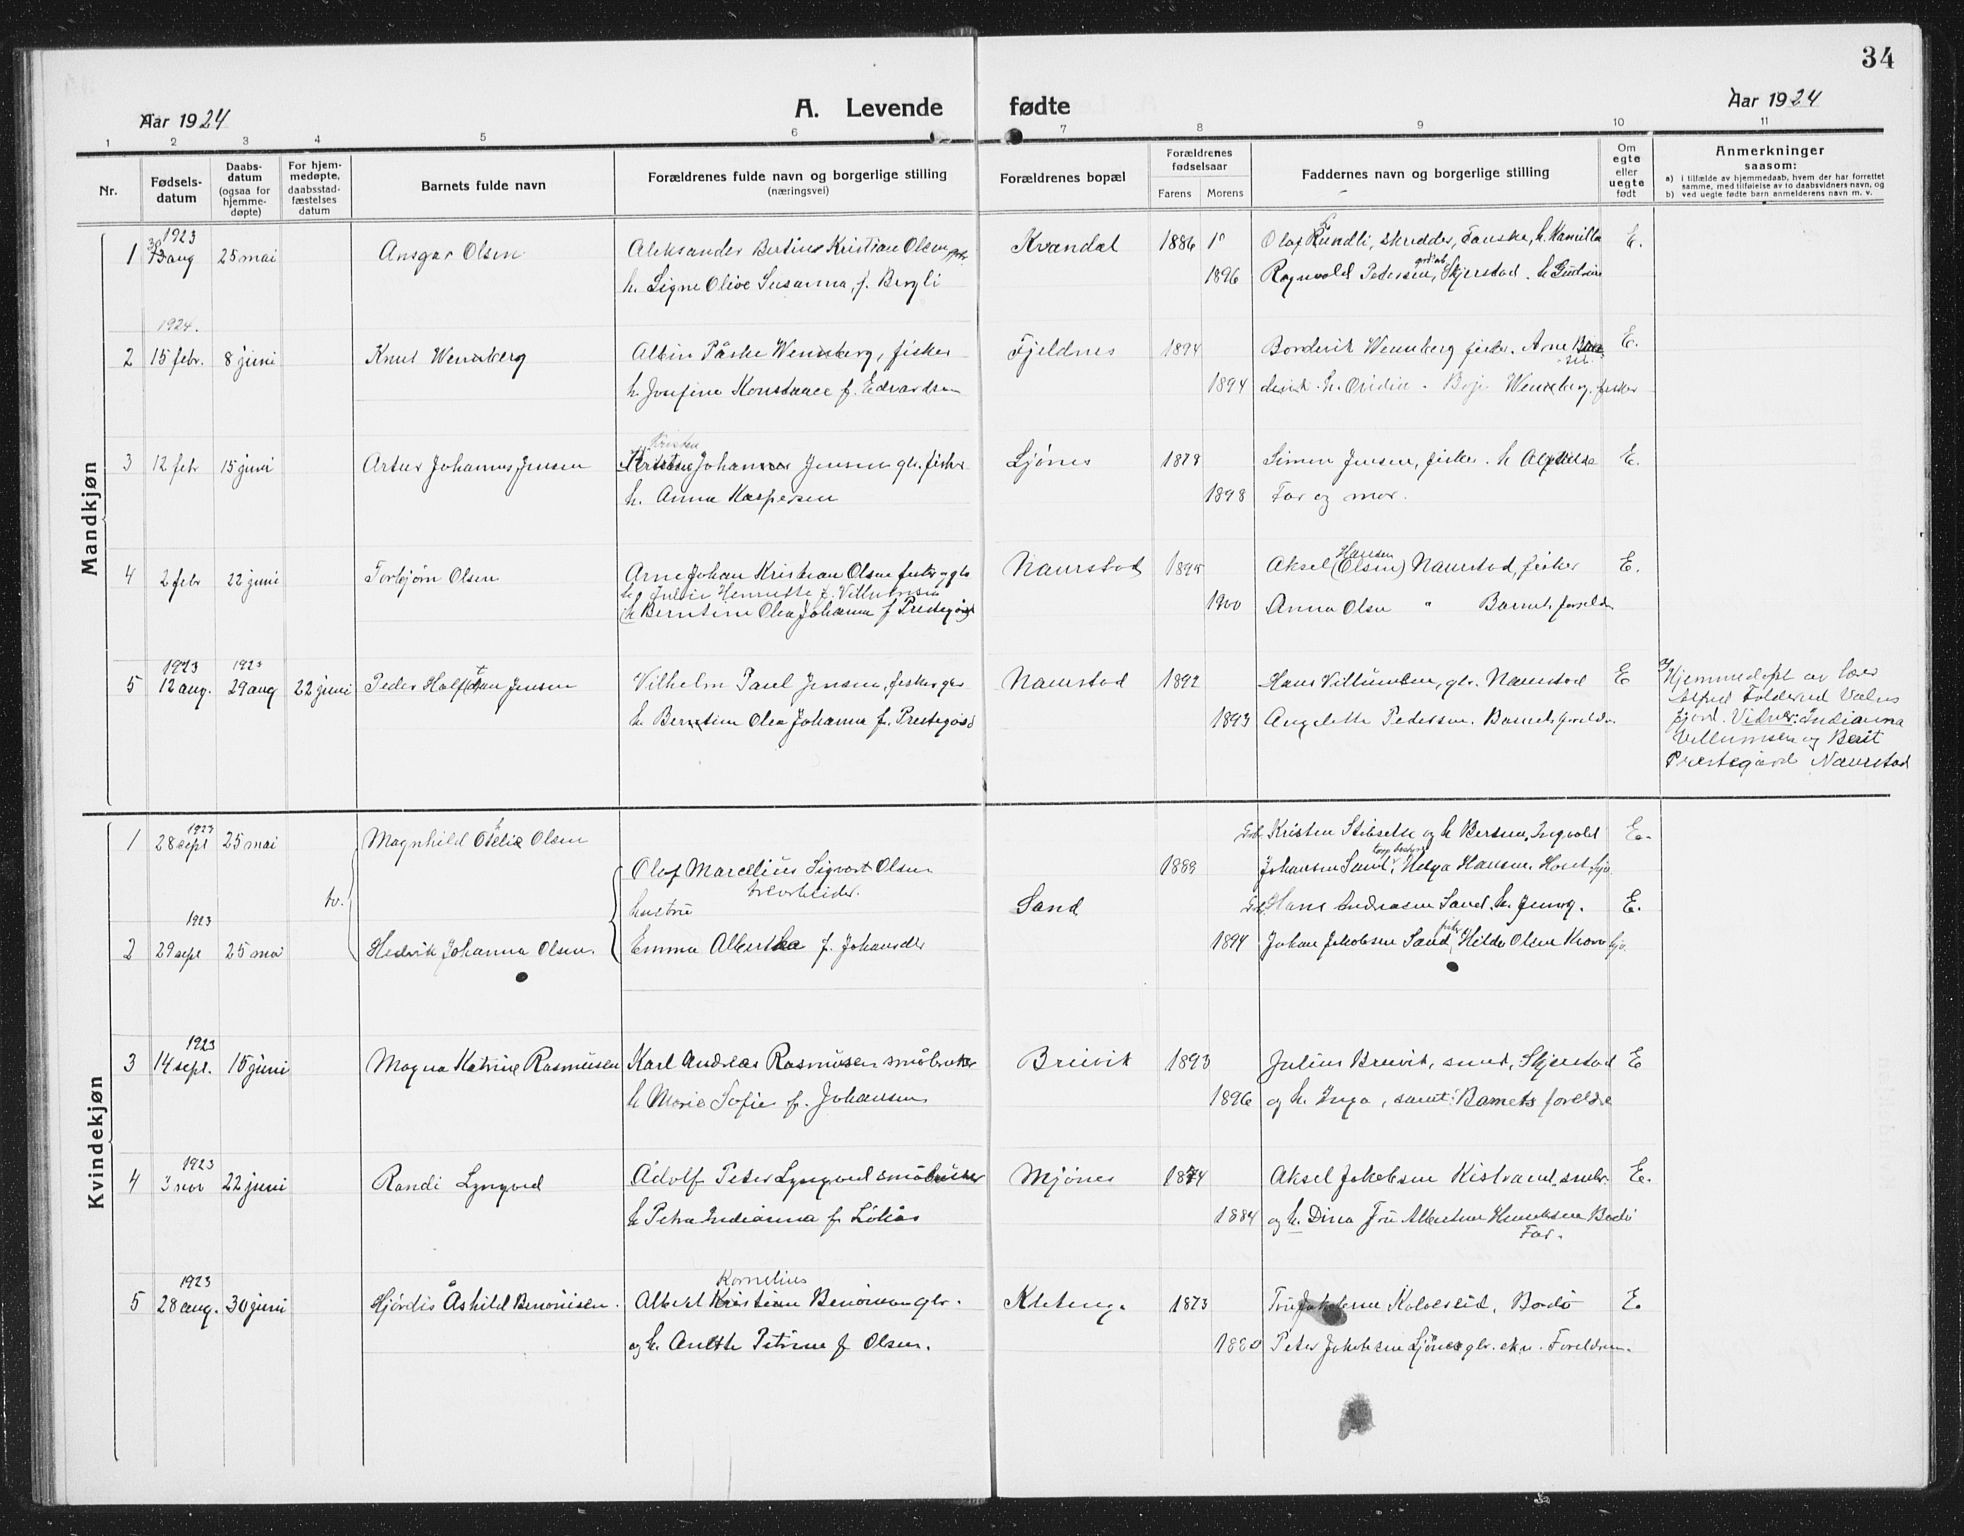 34
Aar 1924
A. Levende fødte
Aar 1924
1 2 3 4 5 6 7 8 9 10 11
Nr.
Fødsels-
datum
Daabs-
datum
(ogsaa for
hjemme-
døpte)
For hjem-
medøpte,
daabsstad-
fæstelses
datum
Barnets fulde navn
Forældrenes fulde navn og borgerlige stilling
(næringsvei)
Forældrenes bopæl
Forældrenes
fødselsaar
Farens Morens
Faddernes navn og borgerlige stilling
Om
egte
eller
uegte
født
Anmerkninger
saasom:
a) i tilfælde av hjemmedaab, hvem der har forrettet
samme, med tilføielse av to daabsvidners navn, og
b) ved uegte fødte barn anmelderens navn m. v.
Mandkjøn
1923
1 aug 25 mai Ansgar Olsen Aleksander Bertine Kristian Olsen Kvandal 1886 Olaf Rundli, skredder, Fauske, h. Kamilla E.
h. Signe Olive Susanna, f. Bergli 1896 Ragnvald Pedersen, Skjerstad. h Gudrun
1924.
2 15 febr. 8 juni Knut Wennberg Albin Påske Wennberg, fisker Fjeldnes 1894 Borderik Wennberg fisker. Arne E.
h. Josefine Konstance f. Edvardsen 1894 h. Ovidia. Wennberg, fisker
Kristen
3 12 febr 15 juni Artur Johannes Jensen Johannes Jensen gbr. fisker Ljønes 1878 Simon Jensen, fisker. h Alfhilde E.
h. Anna Kaspersen 1898 Far og mor.
Hansen
4 2 febr 22 juni Torbjørn Olsen Arne Johan Kristian Olsen fisker og gbr Naurstad 1895 Aksel (Olsen) Naurstad, fisker E.
h. Julie Henriette f. Villumsen
(h Berntine Olea Johanna f Prestegård) 1900 Anna Olsen " Barnets foreldre
1923 1923
5 12 aug. 29 aug 22 juni Peder Halfdan Jensen Vilhelm Paul Jensen, fisker gbr Naurstad 1892 Hans Villumsen, gbr. Naurstad E
h. Berntine Olea Johanna f. Prestegård 1893 Angelette Pedersen. Barnets foreldre.
a/ Hjemmedøpt av lærer
Alfred Folderud Valnes
fjord. Vidner: Indianna
Villumsen og Berit
Prestegård Naurstad
Kvindekjøn
1923
1 28 sept 25 mai Magnhild Otelie Olsen Kristen Stibsette og h Bersine, Ingvald E.
Olaf Marcelius Sigvart Olsen 1888 Johansen Sand, Helga Hansen, Hoset Skjv.
trearbeider.
tv. hustru Sand Hans Andreasen Sand, h. Jenny. E.
1923
2 29 sept 25 mai Hedvik Johanna Olsen. Emma Albertha f. Johansdtr 1894 Johan Jakobsen Sand, fisker Hilda Olsen
1923
3 14 sept. 15 juni Magna Katrine Rasmusen Karl Andreas Rasmusen småbruker Breivik 1893 Julius Breivik, smed, Skjerstad E
h Marie Sofie f. Johansen 1896 og h. Inga, samt: Barnets foreldre
1923
4 3 nov 22 juni Randi Lyngved Adolf Peter Lyngved småbruker Mjønes 1874 Aksel Jakobsen Kistrand, småbr. E.
h Petra Indianna f. Løkås 1884 og h. Dina Fru Albertine Henriksen Bodø
Far.
1923 Kornelius
5 28 aug. 30 juni Hjørdis Åshild Benonisen. Albert Kristian Benonisen gbr. Kletenga 1873 Fru Jakobsen, Bodø E.
og h. Anette Petrine f Olsen. 1880 Peter Jakobsen Ljønes gbr. Foreldrene.